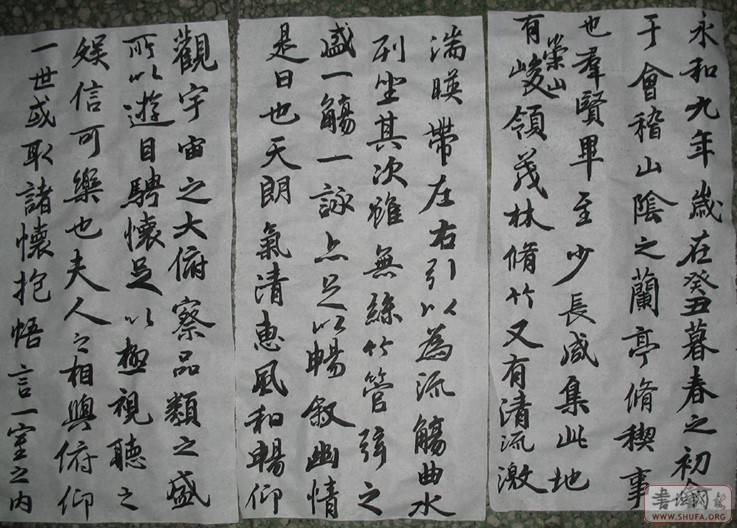 永和九年歲在癸丑暮春之初會
于會稽山陰之蘭亭脩稧事
也羣賢畢至少長咸集此地
有崇山峻領茂林脩竹又有清流激
湍暎帶左右引以為流觴曲水
列坐其次雖無絲竹管弦之
盛一觴一詠亦足以暢敘幽情
是日也天朗氣清惠風和暢仰
觀宇宙之大俯察品類之盛
所以遊目騁懷足以極視聽之
娛信可樂也夫人之相與俯仰
一世或取諸懷抱悟言一室之內
書法网
WWW.SHUFA.ORG